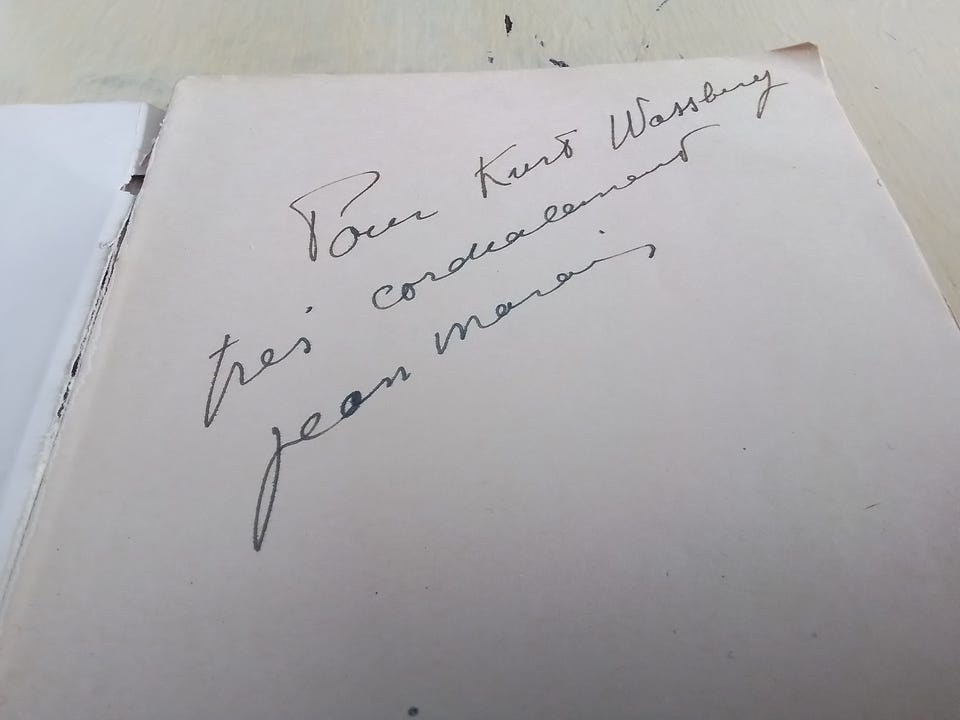 Pour Kurt Wassberg
très cordialement
jean marais